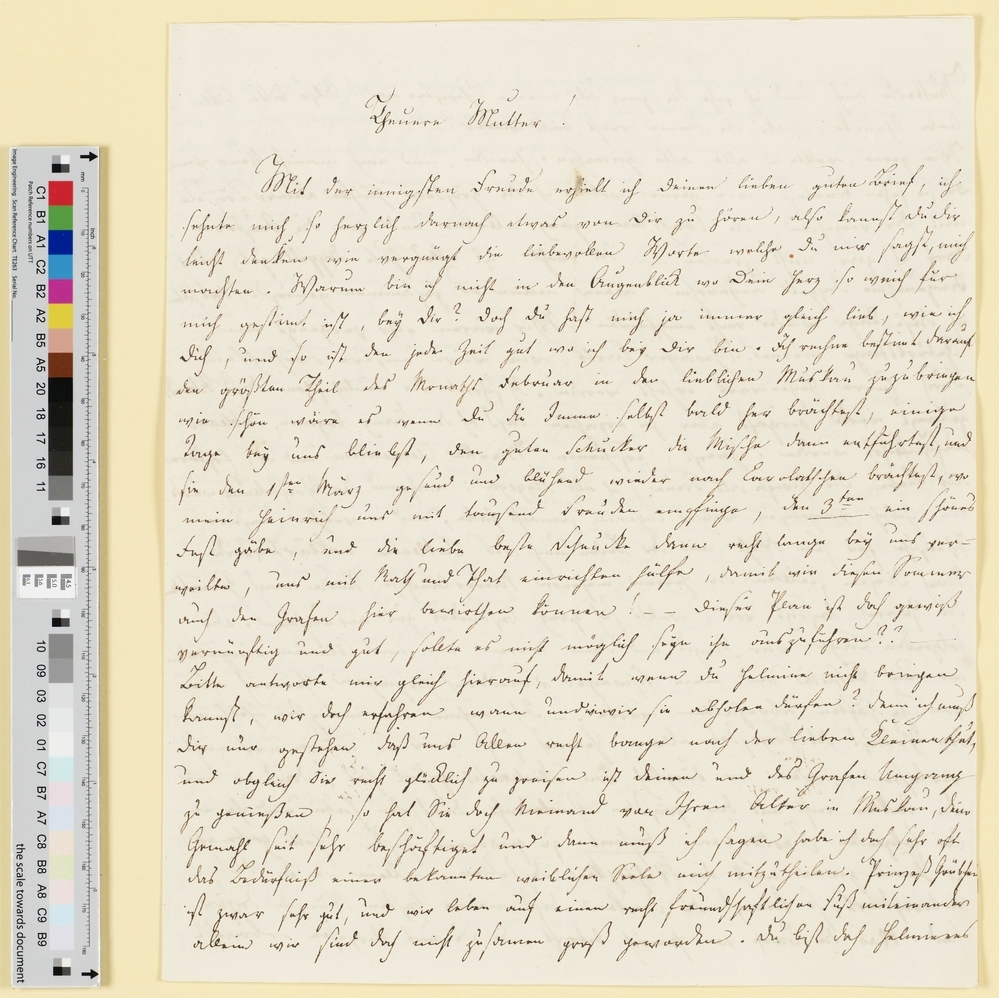 Theuere Mutter!
Mit der innigsten Freude erhielt ich Deinen lieben guten Brief, ich
sehnte mich so herzlich darnach etwas von Dir zu hören, also kannst Du dir
leicht denken wie vergnügt die liebevollen Worte welche Du mir sagst, mich
machten. Warum bin ich nicht in den Augenblick wo Dein Herz so weich für
mich gestimt ist, bey Dir? Doch Du hast mich ja immer gleich lieb, wie ich
Dich, und so ist den jede Zeit gut wo ich bey Dir bin. Ich rechne bestimt darauf
den größten Theil des Monaths Februar in den lieblichen Muskau zuzubringen
wie schön wäre es wenn Du die Imme selbst bald her brächtest, einige
Tage bey uns bliebst, den guten Schucker die Mische dann entführtest, und
sie den 1sten März gesund und blühend wieder nach Carolathschen brächtest, wo
mein Heinrich uns mit tausend Freuden empfinge, den 3ten ein schönes
Fest gäbe, und die liebe beste Schnucke dann recht lange bey uns ver-
weilte, uns mit Rath und That einrichten hülfe, damit wir diesen Sommer
auch den Grafen hier bewirthen können! — — Dieser Plan ist doch gewiß
vernünftig und gut, sollte es nicht möglich seyn ihn auszuführen??
Bitte antworte mir gleich hierauf, damit wenn du Helmine nicht bringen
kannst, wir doch erfahren wann und wie wir sie abholen dürfen? denn ich muß
Dir nur gestehen daß uns Allen recht bange nach der lieben Kleinen thut,
und obgleich Sie recht glücklich zu preisen ist deinen und des Grafen Umgang
zu genießen, so hat Sie doch Niemand von Ihren Alter in Muskau, dein
Gemahl seit sehr beschäftiget und dann muß ich sagen habe ich doch sehr oft
das Bedürfniß einer bekannten weiblichen Seele mich mitzutheilen. Prinzeß
ist zwar sehr gut, und wir leben auf einen recht freundschaftlichen Fuß miteinander
allein wir sind doch nicht zusamen groß geworden. Du bist doch Helminens